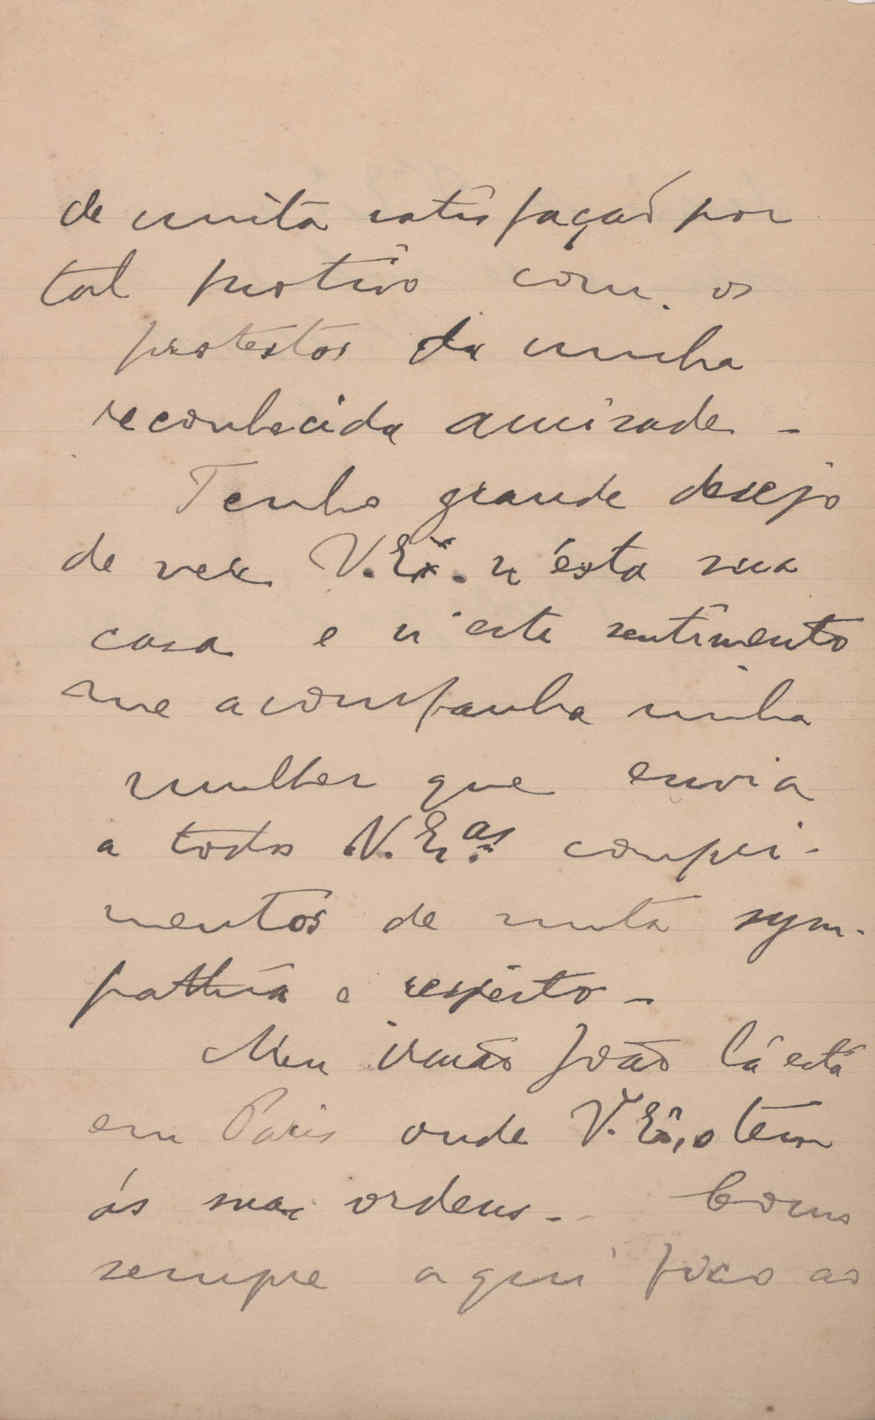 de muita satisfaçaõ por
tal motivo com os
protestos da minha
reconhecida amizade -
Tenho grande desejo
de ver V. Exª. n'esta sua
casa e n'este sentimento
me acompanha minha
mulher que envia
a todos V. Exas compri-
mentos de muita sym-
pathia e respeito -
Meu irmão João lá está
em Paris onde V. Exª, o tem
ás suas ordens - Como
sempre aqui fico ao